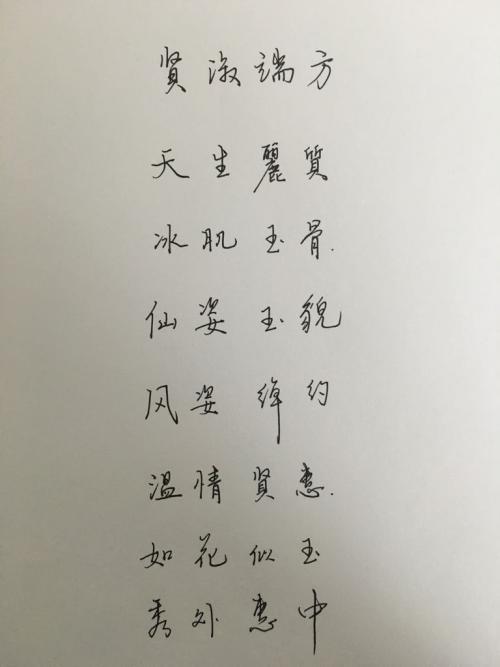 贤淑端方
天生麗質
冰肌玉骨.
仙姿玉貌
风姿绰约
温情贤惠.
如花似玉
秀外惠中